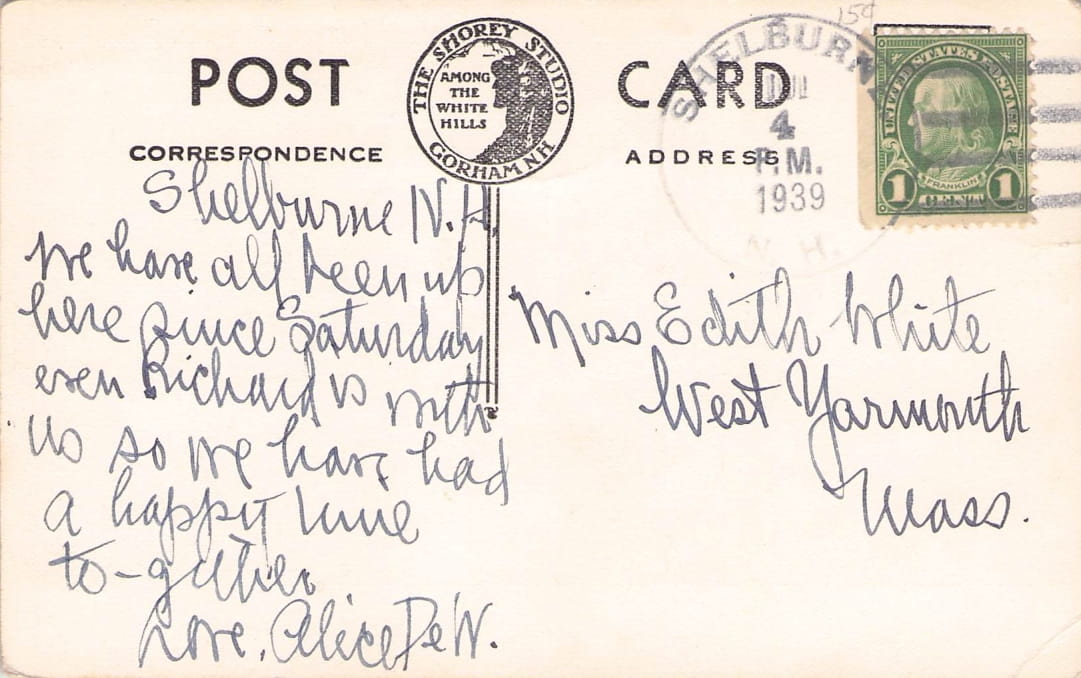 POST CARD
THE SHOREY STUDIO
AMONG
THE
WHITE
HILLS
GORHAM NH
CORRESPONDENCE
ADDRESS
15¢
SHELBURN
JUL
4
P.M.
1939
N. H.
UNITED STATES POSTAGE
FRANKLIN
1 CENT 1
Shelburne N.H.
We have all been up
here since Saturday
even Richard is with
us so we have had
a happy time
to-gether
Love, Alice De W.
Miss Edith White
West Yarmouth
Mass.